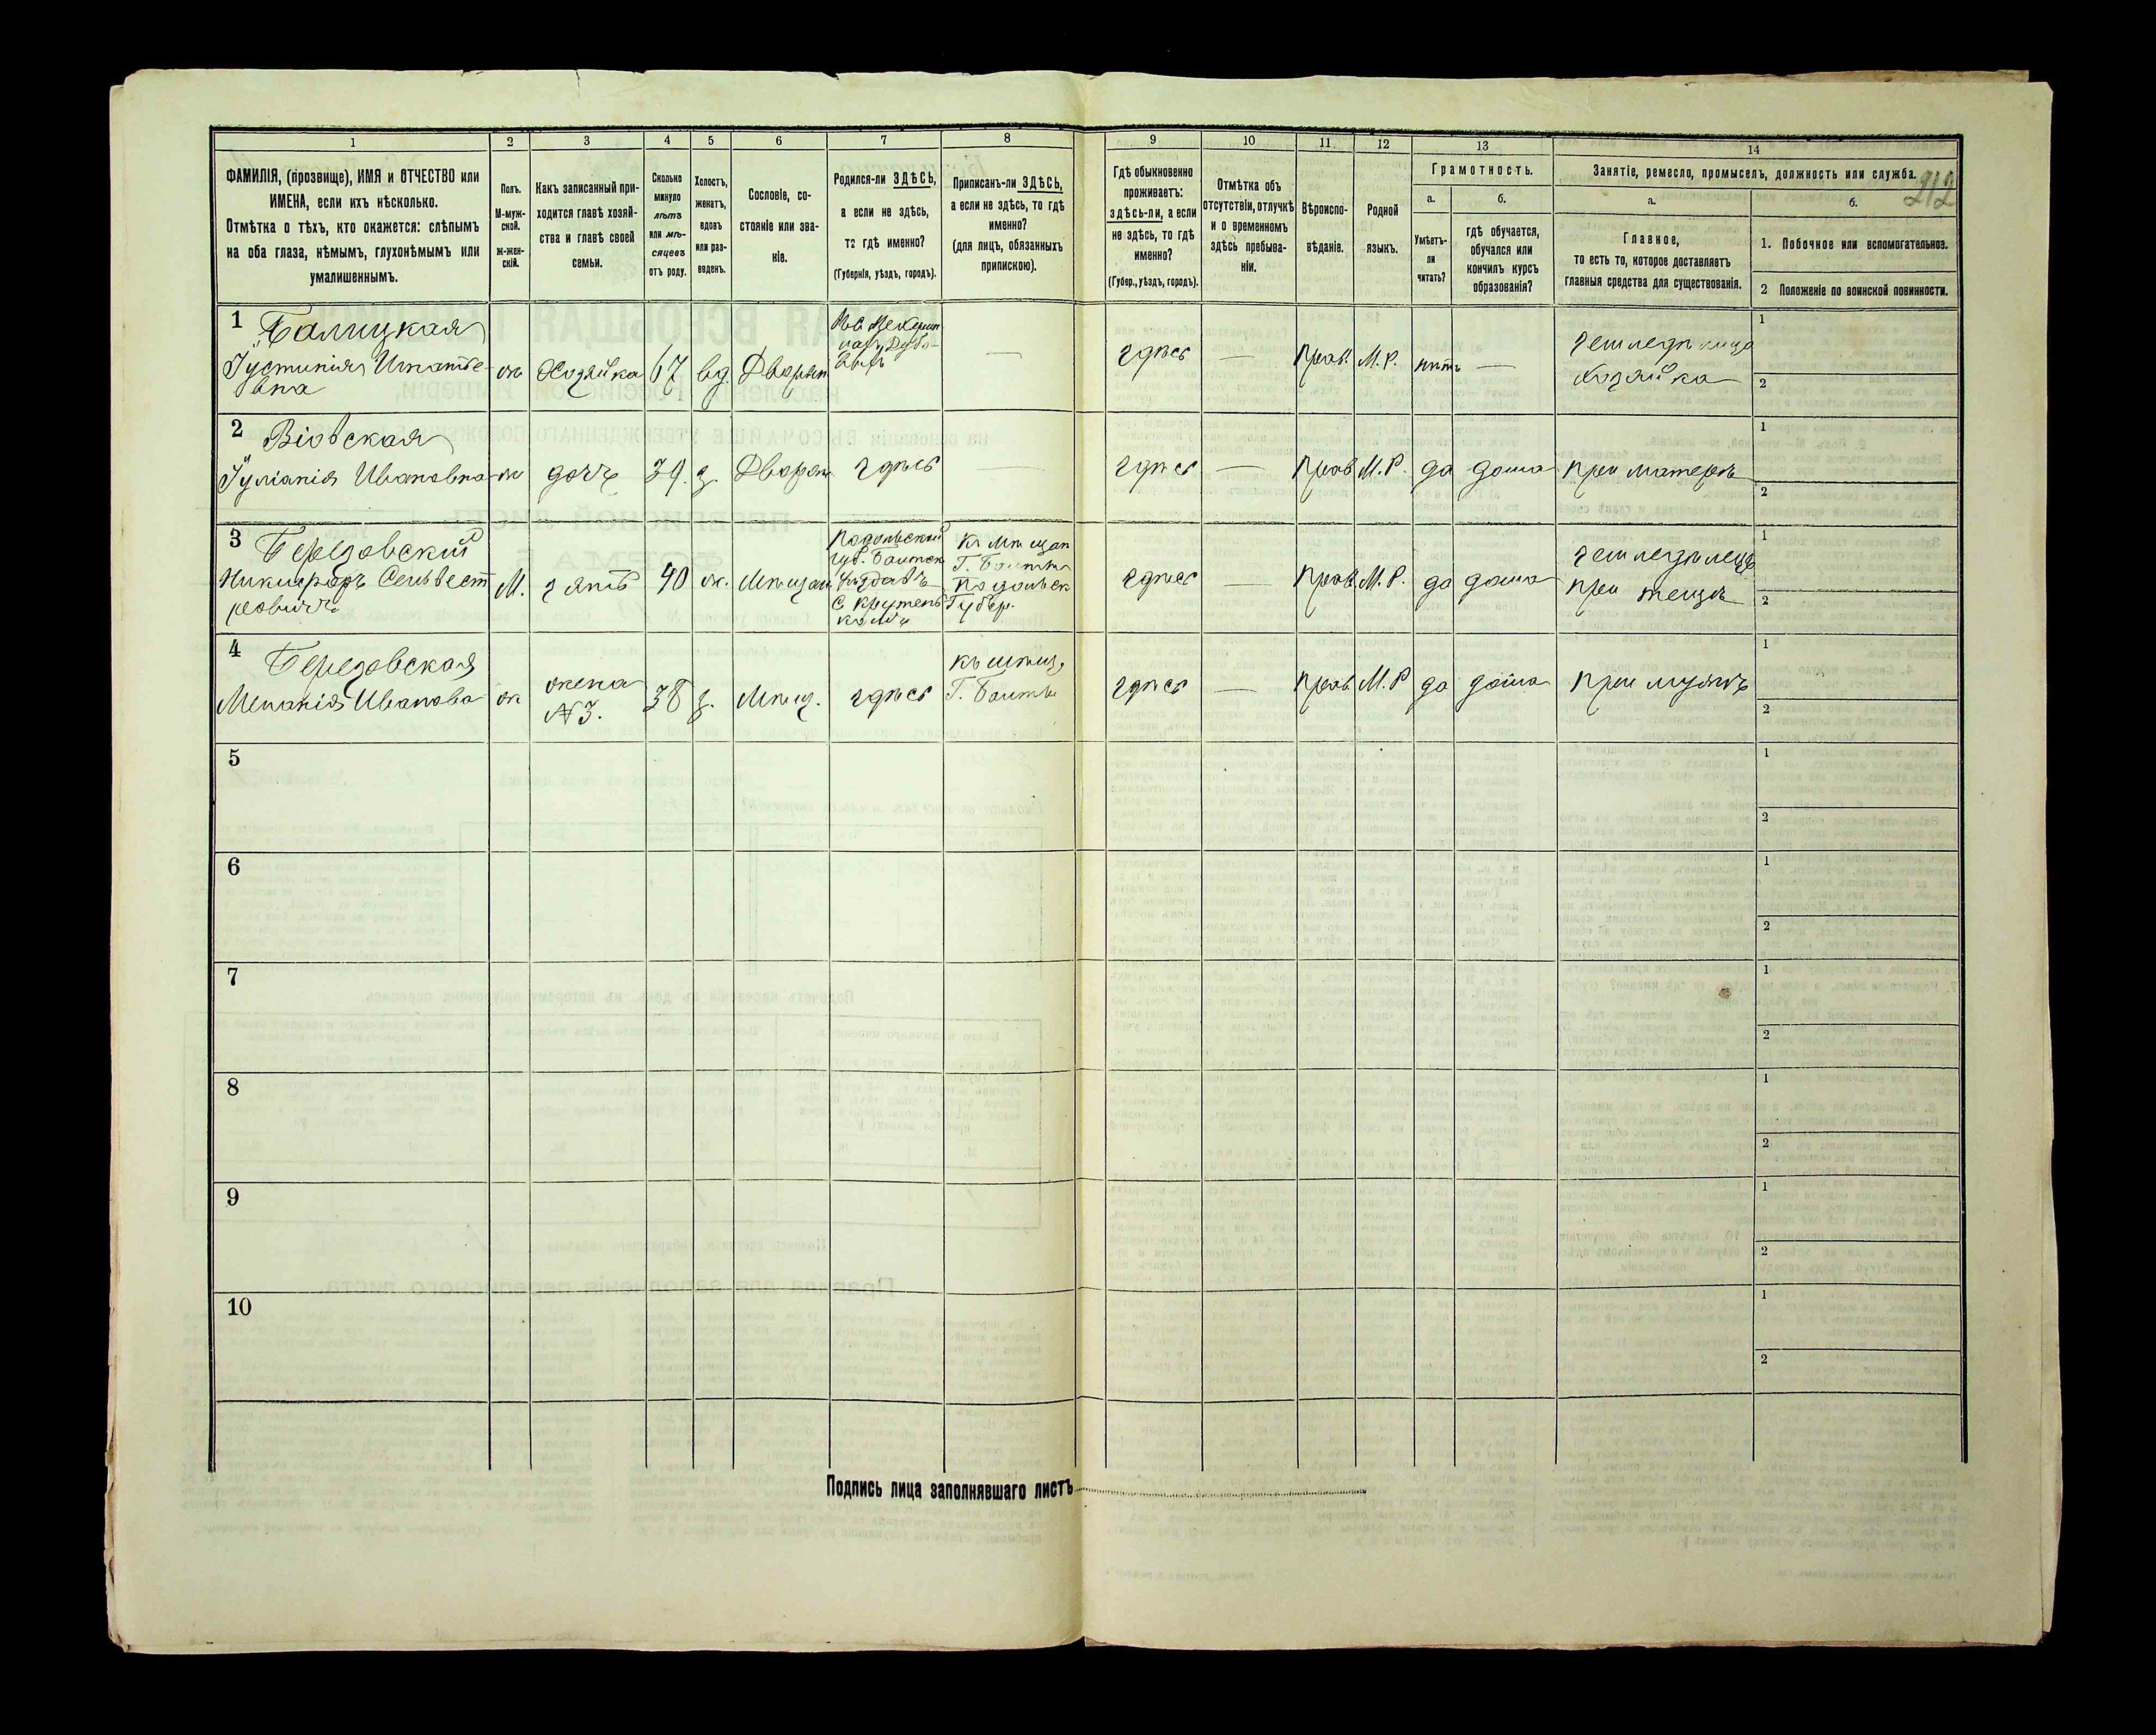 1
2
3
4
5
6
7
8
9
10
11
12
13
14
ФАМИЛІЯ, (прозвище), ИМЯ и ОТЧЕСТВО или
ИМЕНА, если ихъ нѣсколько.
Отмѣтка о тѣхъ, кто окажется: слѣпымъ
на оба глаза, нѣмымъ, глухонѣмымъ или
умалишеннымъ.
Полъ.
М-муж-
ской.
ж-жен-
скій.
Какъ записанный при-
ходится главѣ хозяй-
ства и главѣ своей
семьи.
Сколько
минуло
лѣтъ
или мѣ-
сяцевъ
отъ роду.
Холостъ,
женатъ,
вдовъ
или раз-
веденъ.
Сословіе, со-
стояніе или зва-
ніе.
Родился-ли ЗДѢСЬ,
а если не здѣсь,
то гдѣ именно?
(Губернія, уѣздъ, городъ).
Приписанъ-ли ЗДѢСЬ,
а если не здѣсь, то гдѣ
именно?
(для лицъ, обязанныхъ
припискою).
Гдѣ обыкновенно
проживаетъ:
здѣсь-ли, а если
не здѣсь, то гдѣ
именно?
(Губер., уѣздъ, городъ).
Отмѣтка объ
отсутствіи, отлучкѣ
и о временномъ
здѣсь пребыва-
ніи.
Вѣроиспо-
вѣданіе.
Родной
языкъ.
Грамотность.
а.
Умѣетъ-
ли
читать?
б.
гдѣ обучается,
обучался или
кончилъ курсъ
образованія?
Занятіе, ремесло, промыселъ, должность или служба.
212
а.
Главное,
то есть то, которое доставляетъ
главныя средства для существованія.
б.
1. Побочное или вспомогательное.
2 Положеніе по воинской повинности.
1 Балицкая
Іустинія Игнатье
вна
ж
Хозяйка
67
вд.
Дворян
здѣсь
Прав.
М.Р.
нѣтъ
Хозяйка
1
2
2
Іуліанія Ивановна
ж
дочь
39.
з.
Дворян
здѣсь
здѣсь
Прав
М.Р.
да
дома
при матери
1
2
3 Березовский
Никифоръ Сельвест
ровичъ
М.
зять
40
ж.
Мѣщан
Подольской
губ. Балтск
уѣзда
с Крутень
кая
къ мѣщан
Г. Балты
Подольск
Губер.
здѣсь
Прав.
М.Р.
да
дома
земледѣлецъ
при тещѣ
1
2
4 Березовская
Меланія Иванова
ж
жена
№3.
38
з.
Мѣщ.
здѣсь
къ мѣщ,
Г. Балты
здѣсь
Прав.
М.Р
да
дома
при мужѣ
1
2
5
1
2
6
1
2
7
1
2
8
1
2
9
1
2
10
1
2
Подпись лица заполнявшаго листъ